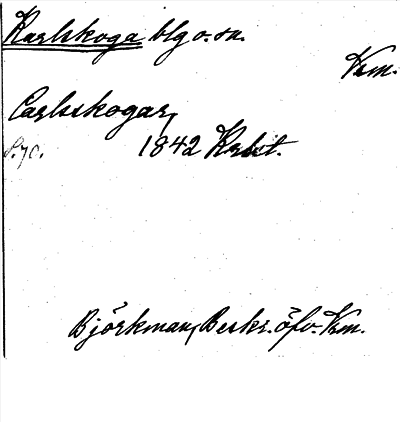 Karlskoga blg o. sn.
Vrm.
Carlskogar,
S. 70. 1842 Krbit.
Björkman, Beskr. öfv. Vrm.